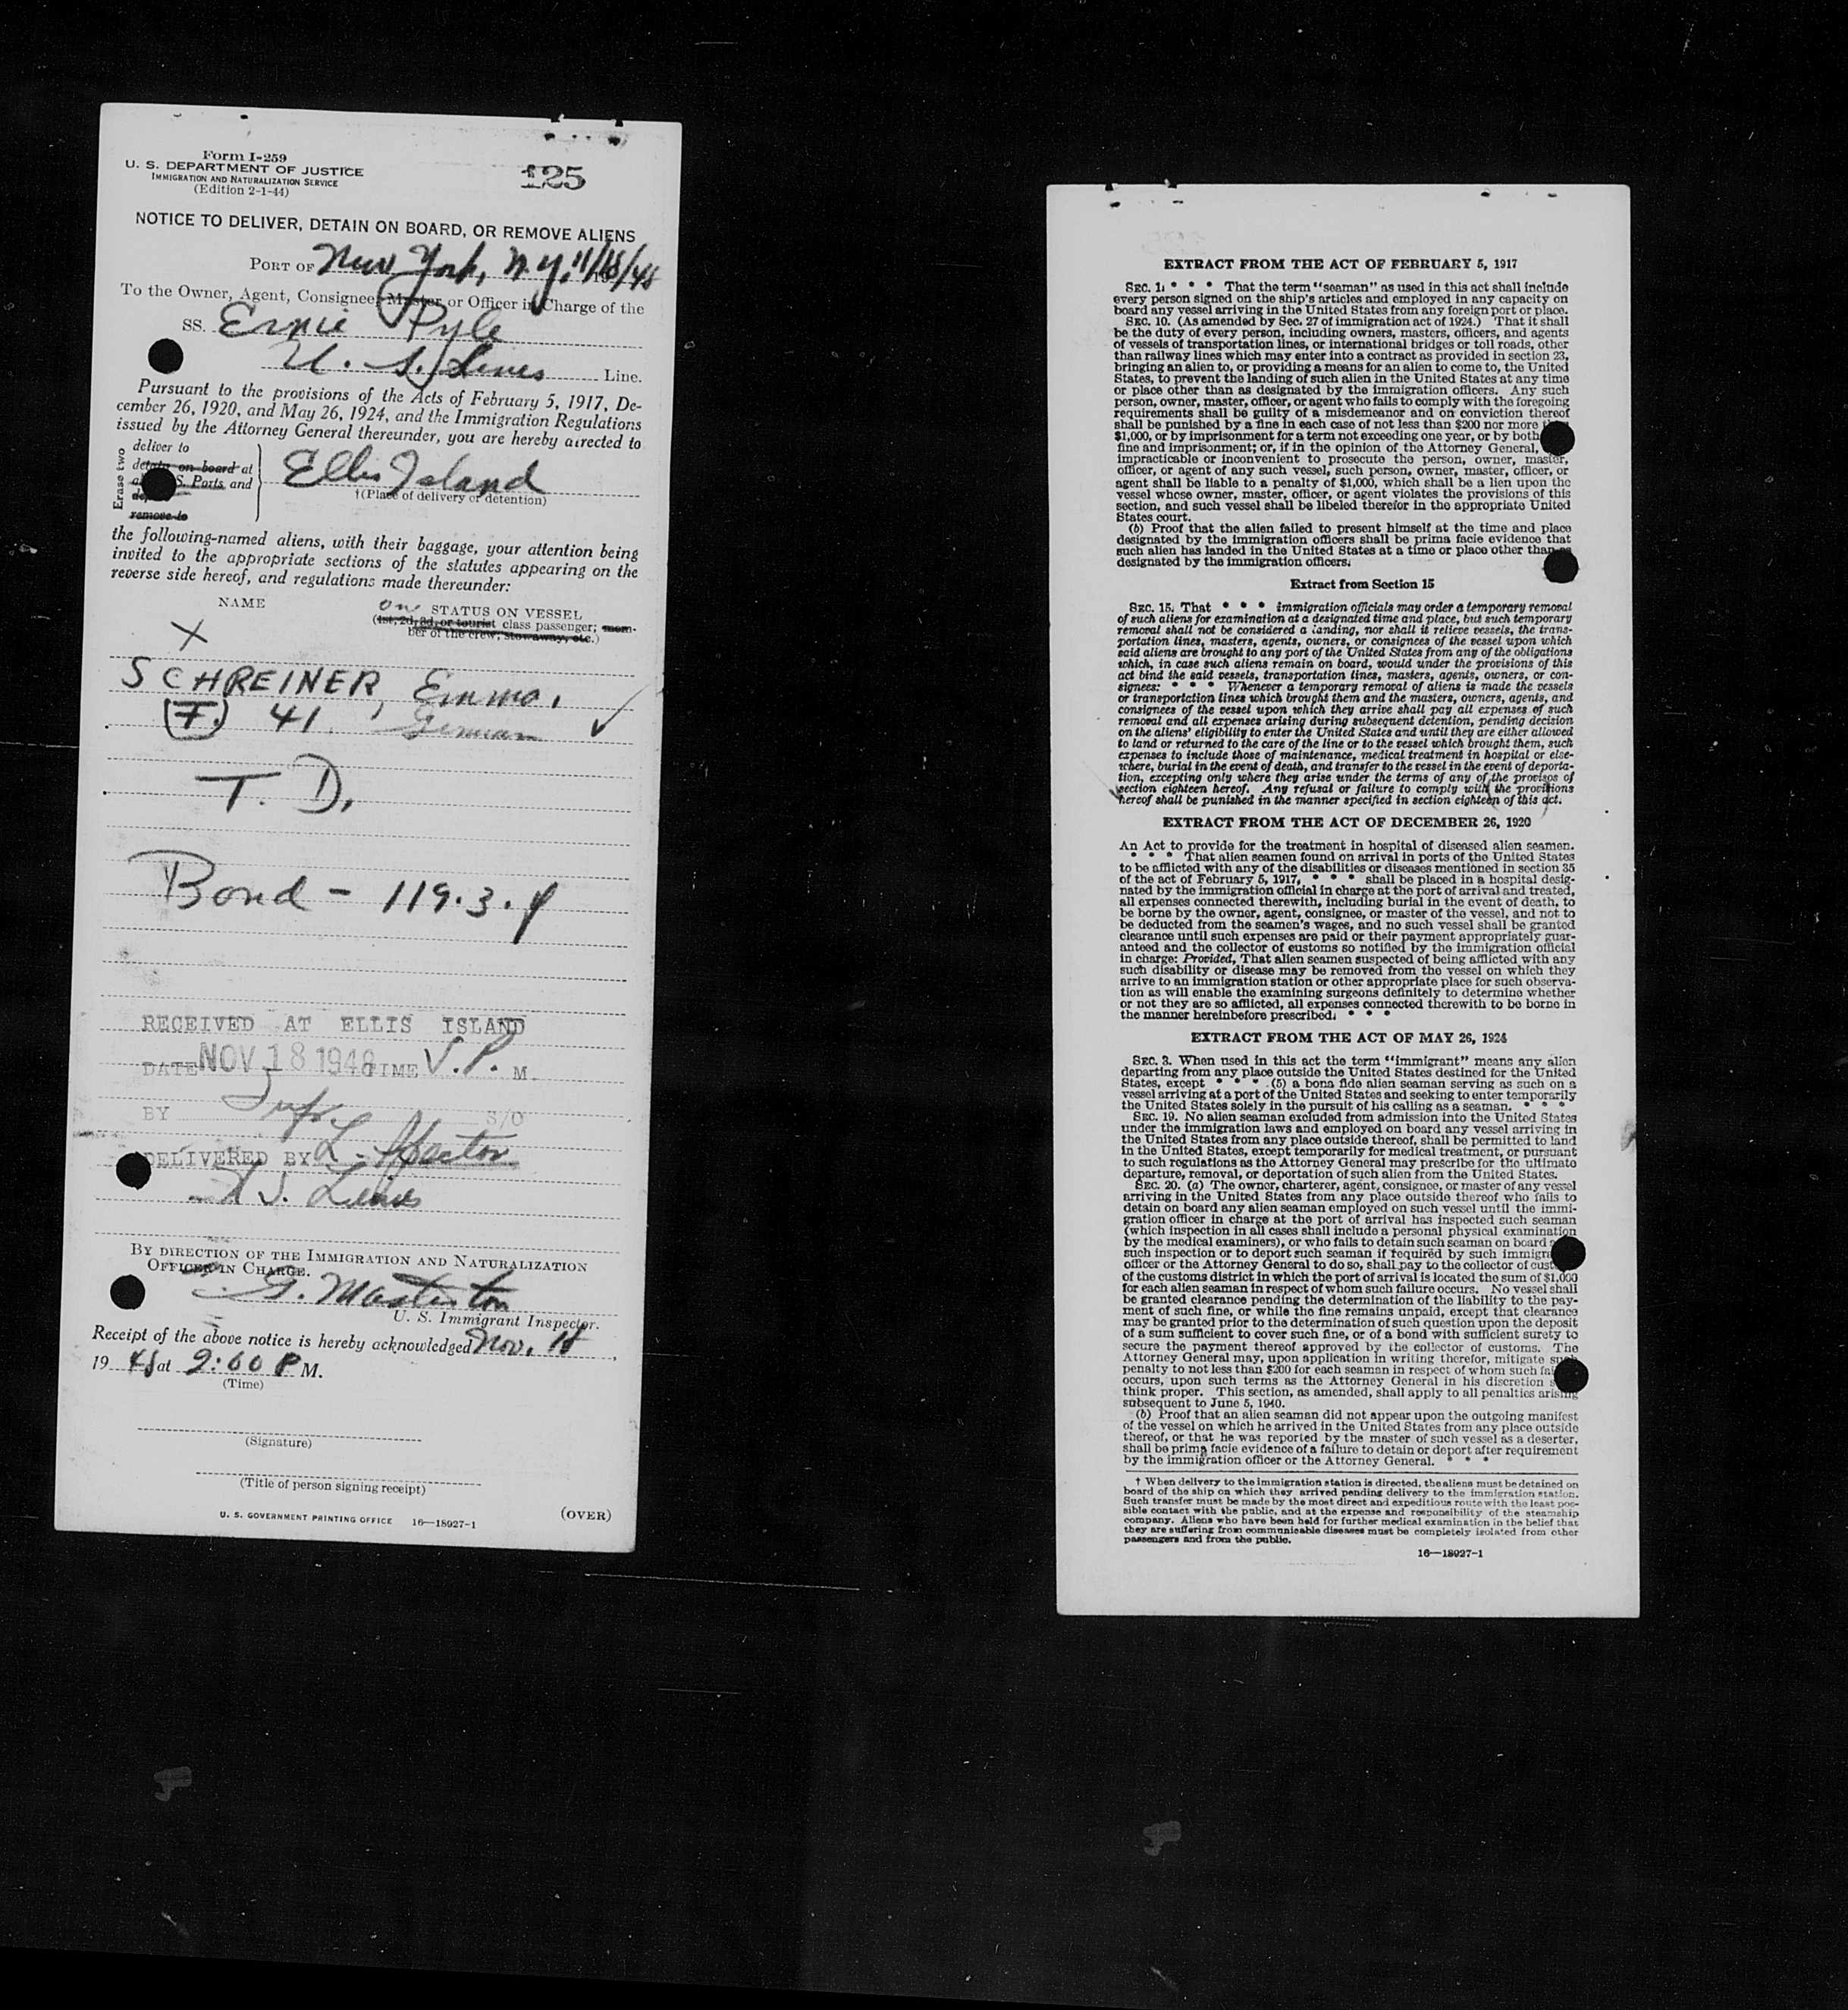 Form I-259
U. S. DEPARTMENT OF JUSTICE
IMMIGRATION AND NATURALIZATION SERVICE
(Edition 2-1-44)
125
NOTICE TO DELIVER, DETAIN ON BOARD, OR REMOVE ALIENS
PORT OF New York, N.Y. 11/18/48
To the Owner, Agent, Consignee, Master or Officer in Charge of the
SS. Ernie Pyle
U. S. Lines Line.
Pursuant to the provisions of the Acts of February 5, 1917, De-
cember 26, 1920, and May 26, 1924, and the Immigration Regulations
issued by the Attorney General thereunder, you are hereby directed to
Erase two
deliver to
detain on board at
S. Ports and
remove to
Ellis Island
†(Place of delivery or detention)
the following-named aliens, with their baggage, your attention being
invited to the appropriate sections of the statutes appearing on the
reverse side hereof, and regulations made thereunder:
NAME
on STATUS ON VESSEL
(1st, 2d, 3d, or tourist class passenger; mem-
ber of the crew, stowaway, etc.)
X
SCHREINER, Emma.
(F.) 41, German ✓
T. D.
Bond - 119.3.
RECEIVED AT ELLIS ISLAND
DATE NOV 18 1948 TIME V.P. M.
BY S/O
DELIVERED BY L.
U S. Lines
BY DIRECTION OF THE IMMIGRATION AND NATURALIZATION
OFFICER IN CHARGE.
G. Masterton
U. S. Immigrant Inspector.
Receipt of the above notice is hereby acknowledged Nov. 18,
19 48 at 2:00 P M.
(Time)
(Signature)
(Title of person signing receipt)
U. S. GOVERNMENT PRINTING OFFICE 16—18927-1
(OVER)
EXTRACT FROM THE ACT OF FEBRUARY 5, 1917
SEC. 1. * * * That the term "seaman" as used in this act shall include
every person signed on the ship's articles and employed in any capacity on
board any vessel arriving in the United States from any foreign port or place.
SEC. 10. (As amended by Sec. 27 of immigration act of 1924.) That it shall
be the duty of every person, including owners, masters, officers, and agents
of vessels of transportation lines, or international bridges or toll roads, other
than railway lines which may enter into a contract as provided in section 23,
bringing an alien to, or providing a means for an alien to come to, the United
States, to prevent the landing of such alien in the United States at any time
or place other than as designated by the immigration officers. Any such
person, owner, master, officer, or agent who fails to comply with the foregoing
requirements shall be guilty of a misdemeanor and on conviction thereof
shall be punished by a fine in each case of not less than $200 nor more
$1,000, or by imprisonment for a term not exceeding one year, or by both
fine and imprisonment; or, if in the opinion of the Attorney General,
impracticable or inconvenient to prosecute the person, owner, master,
officer, or agent of any such vessel, such person, owner, master, officer, or
agent shall be liable to a penalty of $1,000, which shall be a lien upon the
vessel whose owner, master, officer, or agent violates the provisions of this
section, and such vessel shall be libeled therefor in the appropriate United
States court.
(b) Proof that the alien failed to present himself at the time and place
designated by the immigration officers shall be prima facie evidence that
such alien has landed in the United States at a time or place other than as
designated by the immigration officers.
Extract from Section 15
SEC. 15. That * * * immigration officials may order a temporary removal
of such aliens for examination at a designated time and place, but such temporary
removal shall not be considered a landing, nor shall it relieve vessels, the trans-
portation lines, masters, agents, owners, or consignees of the vessel upon which
said aliens are brought to any port of the United States from any of the obligations
which, in case such aliens remain on board, would under the provisions of this
act bind the said vessels, transportation lines, masters, agents, owners, or con-
signees: * * * Whenever a temporary removal of aliens is made the vessels
or transportation lines which brought them and the masters, owners, agents, and
consignees of the vessel upon which they arrive shall pay all expenses of such
removal and all expenses arising during subsequent detention, pending decision
on the aliens' eligibility to enter the United States and until they are either allowed
to land or returned to the care of the line or to the vessel which brought them, such
expenses to include those of maintenance, medical treatment in hospital or else-
where, burial in the event of death, and transfer to the vessel in the event of deporta-
tion, excepting only where they arise under the terms of any of the provisos of
section eighteen hereof. Any refusal or failure to comply with the provisions
hereof shall be punished in the manner specified in section eighteen of this act.
EXTRACT FROM THE ACT OF DECEMBER 26, 1920
An Act to provide for the treatment in hospital of diseased alien seamen.
* * * * That alien seamen found on arrival in ports of the United States
to be afflicted with any of the disabilities or diseases mentioned in section 35
of the act of February 5, 1917, * * * shall be placed in a hospital desig-
nated by the immigration official in charge at the port of arrival and treated,
all expenses connected therewith, including burial in the event of death, to
be borne by the owner, agent, consignee, or master of the vessel, and not to
be deducted from the seamen's wages, and no such vessel shall be granted
clearance until such expenses are paid or their payment appropriately guar-
anteed and the collector of customs so notified by the immigration official
in charge: Provided, That alien seamen suspected of being afflicted with any
such disability or disease may be removed from the vessel on which they
arrive to an immigration station or other appropriate place for such observa-
tion as will enable the examining surgeons definitely to determine whether
or not they are so afflicted, all expenses connected therewith to be borne in
the manner hereinbefore prescribed. * * *
EXTRACT FROM THE ACT OF MAY 26, 1924
SEC. 3. When used in this act the term "immigrant" means any alien
departing from any place outside the United States destined for the United
States, except * * * (5) a bona fide alien seaman serving as such on a
vessel arriving at a port of the United States and seeking to enter temporarily
the United States solely in the pursuit of his calling as a seaman. * * *
SEC. 19. No alien seaman excluded from admission into the United States
under the immigration laws and employed on board any vessel arriving in
the United States from any place outside thereof, shall be permitted to land
in the United States, except temporarily for medical treatment, or pursuant
to such regulations as the Attorney General may prescribe for the ultimate
departure, removal, or deportation of such alien from the United States.
SEC. 20. (a) The owner, charterer, agent, consignee, or master of any vessel
arriving in the United States from any place outside thereof who fails to
detain on board any alien seaman employed on such vessel until the immi-
gration officer in charge at the port of arrival has inspected such seaman
(which inspection in all cases shall include a personal physical examination
by the medical examiners), or who fails to detain such seaman on board
such inspection or to deport such seaman if required by such immigra
officer or the Attorney General to do so, shall pay to the collector of cust
of the customs district in which the port of arrival is located the sum of $1,000
for each alien seaman in respect of whom such failure occurs. No vessel shall
be granted clearance pending the determination of the liability to the pay-
ment of such fine, or while the fine remains unpaid, except that clearance
may be granted prior to the determination of such question upon the deposit
of a sum sufficient to cover such fine, or of a bond with sufficient surety to
secure the payment thereof approved by the collector of customs. The
Attorney General may, upon application in writing therefor, mitigate such
penalty to not less than $200 for each seaman in respect of whom such fai
occurs, upon such terms as the Attorney General in his discretion s
think proper. This section, as amended, shall apply to all penalties arising
subsequent to June 5, 1940.
(b) Proof that an alien seaman did not appear upon the outgoing manifest
of the vessel on which he arrived in the United States from any place outside
thereof, or that he was reported by the master of such vessel as a deserter,
shall be prima facie evidence of a failure to detain or deport after requirement
by the immigration officer or the Attorney General. * * *
† When delivery to the immigration station is directed, the aliens must be detained on
board of the ship on which they arrived pending delivery to the immigration station.
Such transfer must be made by the most direct and expeditious route with the least pos-
sible contact with the public, and at the expense and responsibility of the steamship
company. Aliens who have been held for further medical examination in the belief that
they are suffering from communicable diseases must be completely isolated from other
passengers and from the public.
16—18927-1